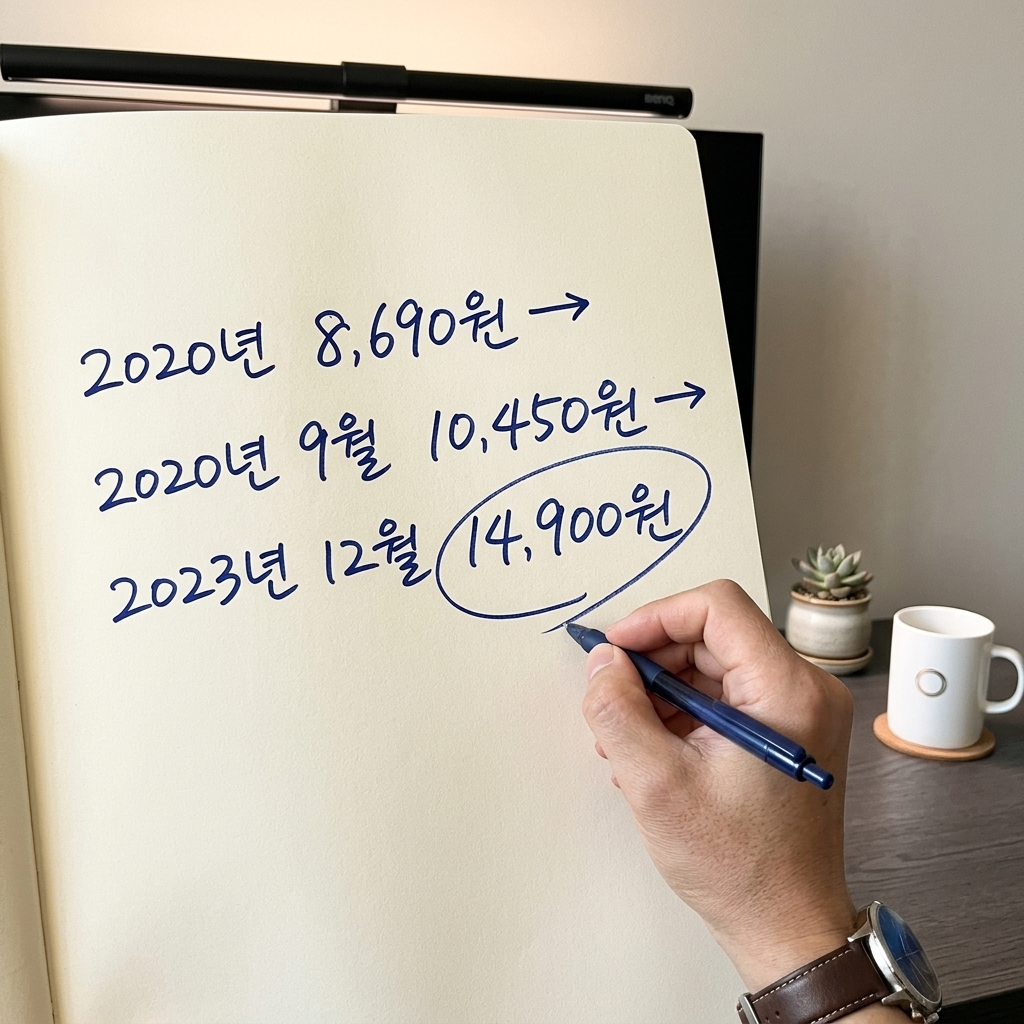 BenQ
2020년 8,690원 →
2020년 9월 10,450원 →
2023년 12월 14,900원